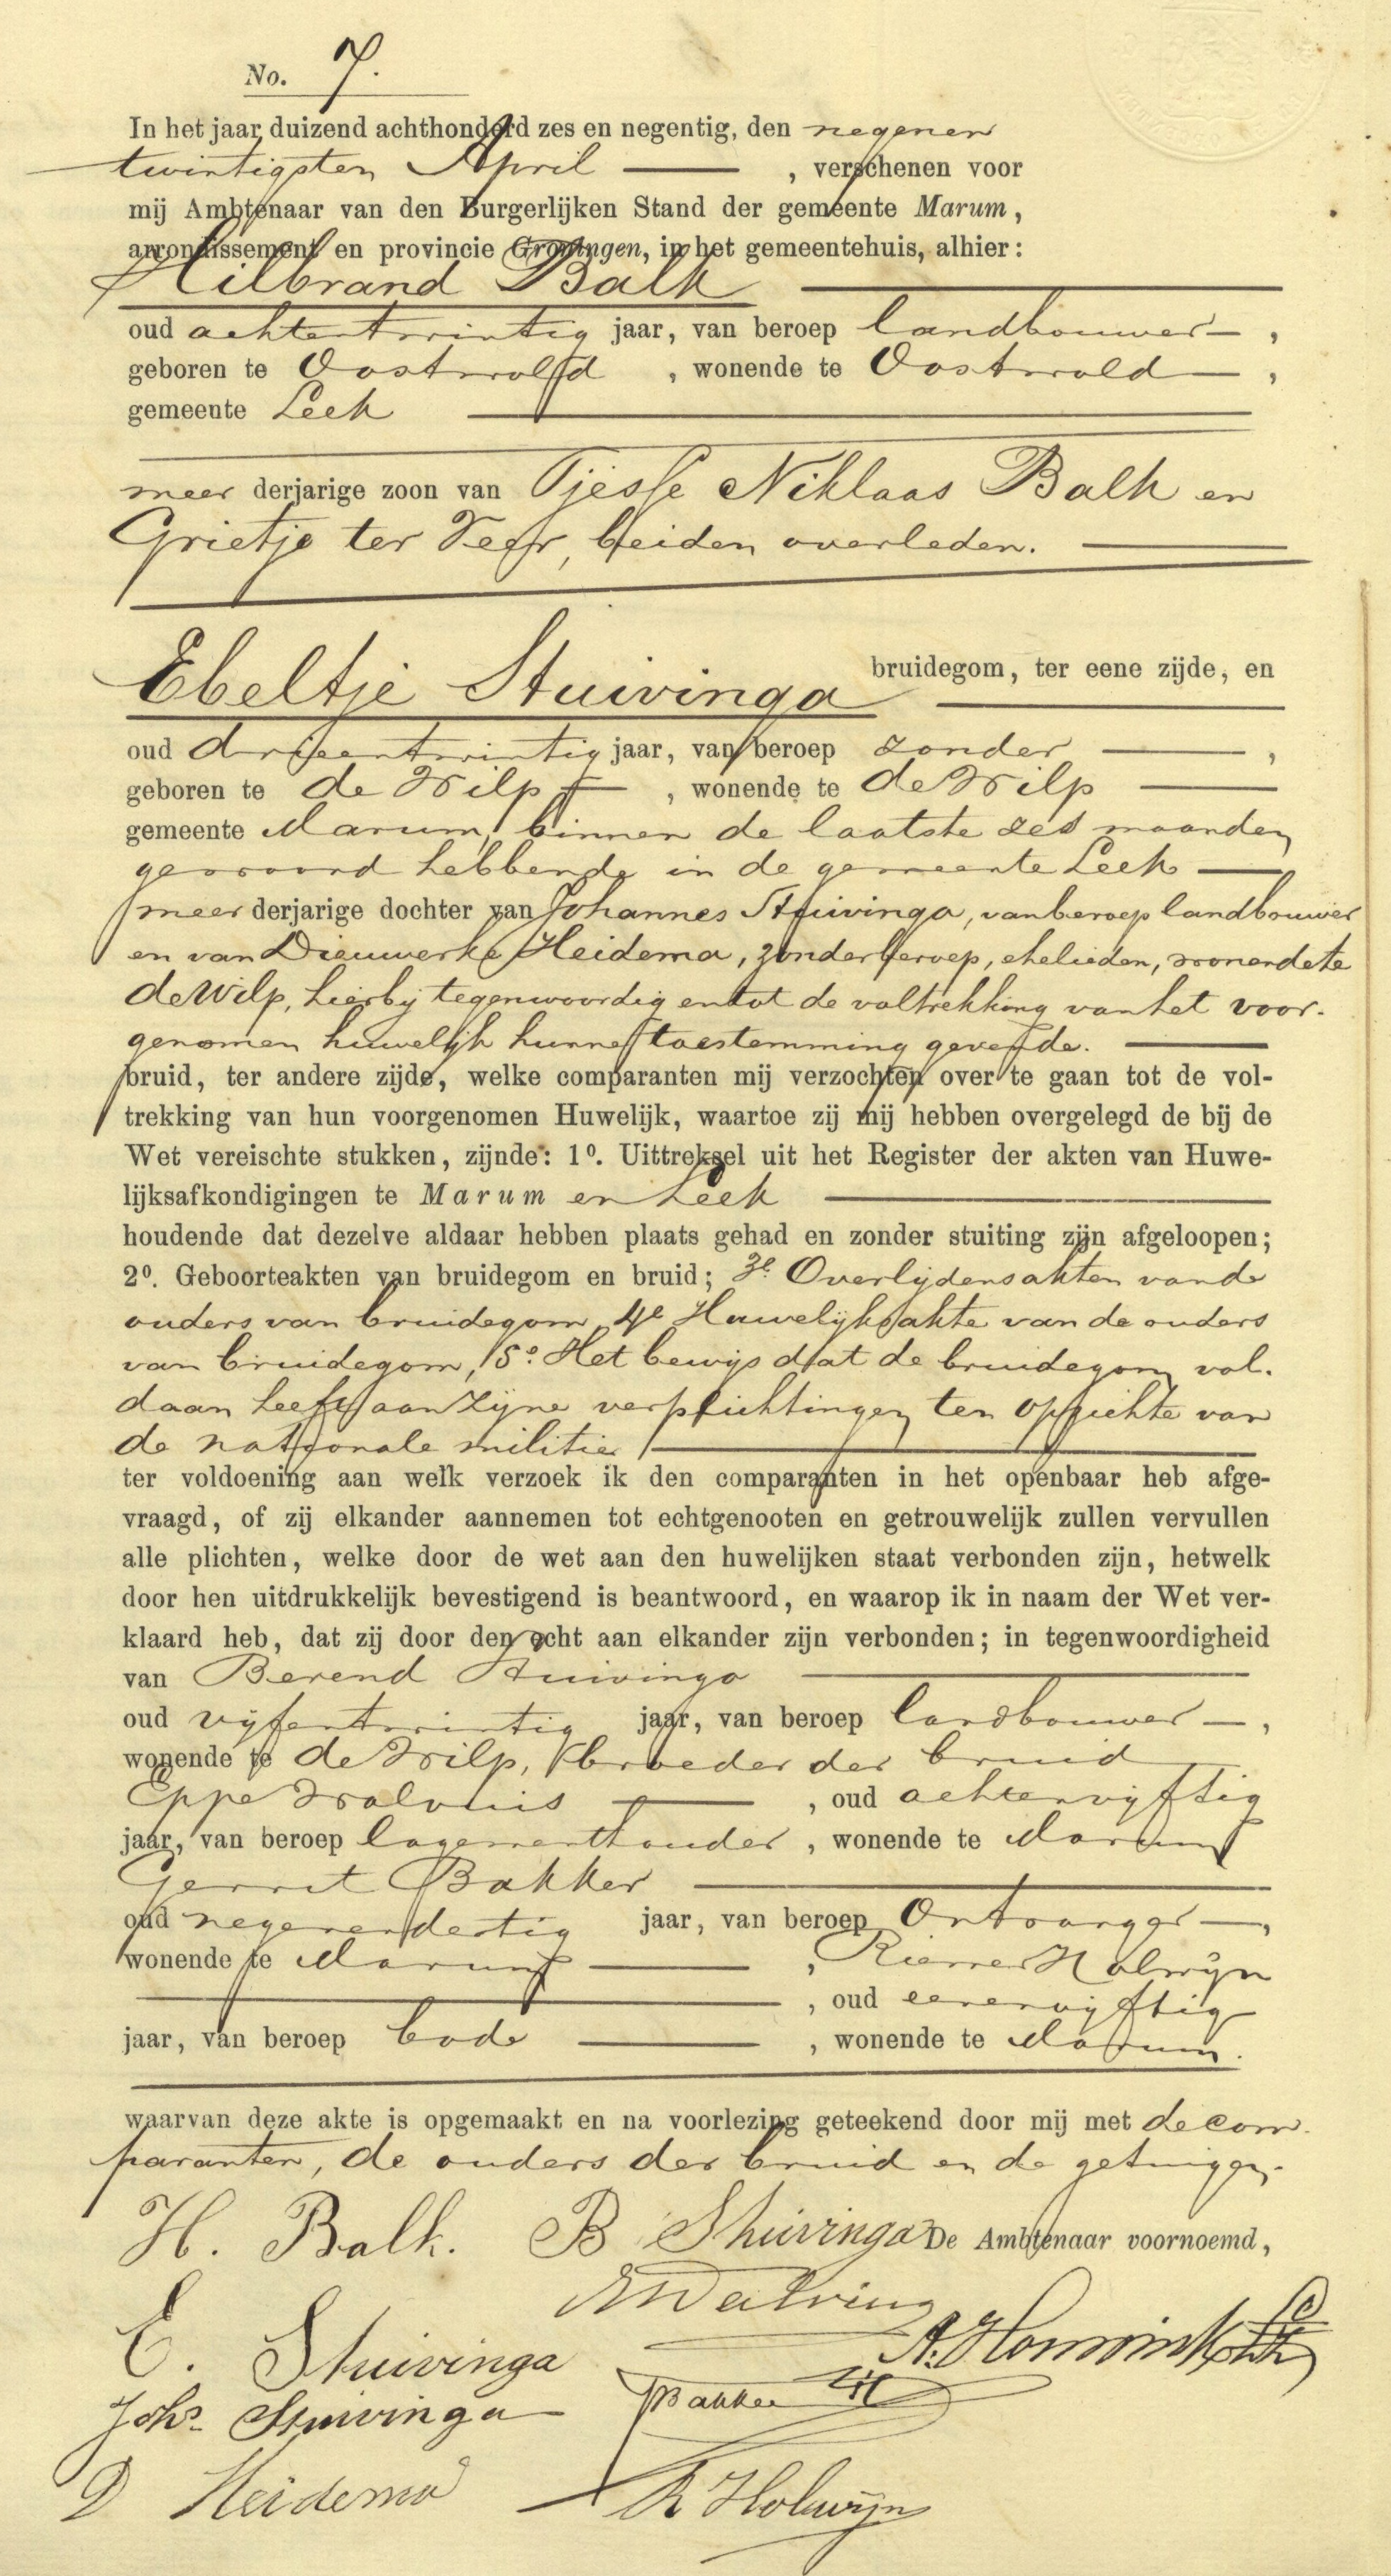 No. 7.
In het jaar duizend achthonderd zes en negentig, den negenen
twintigsten April, verschenen voor
mij Ambtenaar van den Burgerlijken Stand der gemeente Marum,
arrondissement en provincie Groningen, in het gemeentehuis, alhier:
Hilbrand Balk
oud achtentwintig jaar, van beroep landbouwer,
geboren te Oostwold, wonende te Oostwold,
gemeente Leek
meerderjarige zoon van Tjesse Niklaas Balk en
Grietje ter Veer, beiden overleden.
bruidegom, ter eene zijde, en
Ebeltje Stuivinga
oud drieentwintig jaar, van beroep zonder,
geboren te de Wilp, wonende te de Wilp
gemeente Marum, binnen de laatste zes maanden
gewoond hebbende in de gemeente Leek
meerderjarige dochter van Johannes Stuivinga, van beroep landbouwer
en van Dieuwerke Heidema, zonder beroep, ehelieden, wonende te
de Wilp, hierbij tegenwoordig en tot de voltrekking van het voor-
genomen huwelijk hunne toestemming gevende.
bruid, ter andere zijde, welke comparanten mij verzochten over te gaan tot de vol-
trekking van hun voorgenomen Huwelijk, waartoe zij mij hebben overgelegd de bij de
Wet vereischte stukken, zijnde: 1º. Uittreksel uit het Register der akten van Huwe-
lijksafkondigingen te Marum en Leek
houdende dat dezelve aldaar hebben plaats gehad en zonder stuiting zijn afgeloopen;
2º. Geboorteakten van bruidegom en bruid; 3e Overlijdensakten van de
ouders van bruidegom, 4e Huwelijksakte van de ouders
van bruidegom, 5º Het bewijs dat de bruidegom vol-
daan heeft aan zijne verplichtingen ten opzichte van
de nationale militie
ter voldoening aan welk verzoek ik den comparanten in het openbaar heb afge-
vraagd, of zij elkander aannemen tot echtgenooten en getrouwelijk zullen vervullen
alle plichten, welke door de wet aan den huwelijken staat verbonden zijn, hetwelk
door hen uitdrukkelijk bevestigend is beantwoord, en waarop ik in naam der Wet ver-
klaard heb, dat zij door den echt aan elkander zijn verbonden; in tegenwoordigheid
van Berend Stuivinga
oud vijfentwintig jaar, van beroep landbouwer,
wonende te de Wilp, broeder der bruid
Eppe, oud achtenvijftig
jaar, van beroep logementhouder, wonende te Marum
Gerrit Bakker
oud negenendertig jaar, van beroep Ontvanger,
wonende te Marum, Riemer Holwijn
, oud eenenvijftig
jaar, van beroep bode, wonende te Marum.
waarvan deze akte is opgemaakt en na voorlezing geteekend door mij met de com-
paranten, de ouders der bruid en de getuigen.
H. Balk. B Stuivinga De Ambtenaar voornoemd,
E. Stuivinga
Johs. Stuivinga Bakker
D Heidema R Holwijn